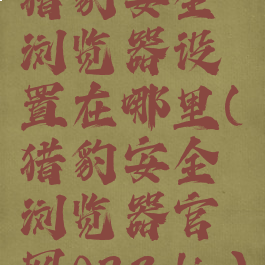 猎豹安全
浏览器设
置在哪里(
猎豹安全
浏览器官
网